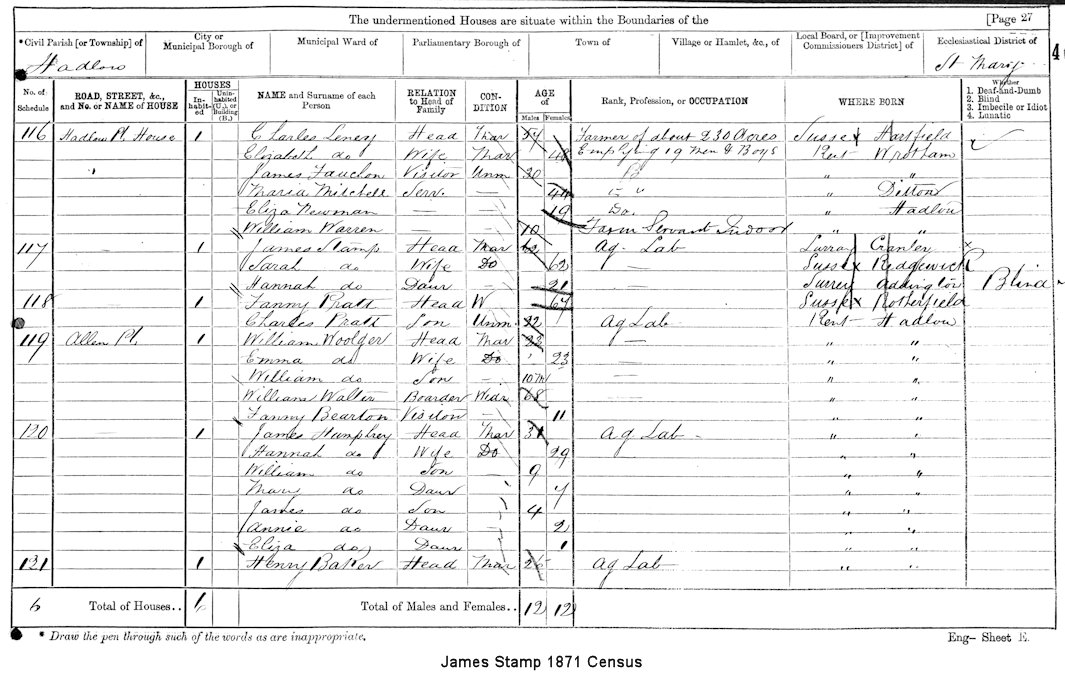 The undermentioned Houses are situate within the Boundaries of the [Page 27
*Civil Parish [or Township] of City or Municipal Borough of Municipal Ward of Parliamentary Borough of Town of Village or Hamlet, &c., of Local Board, or [Improvement Commissioners District] of Ecclesiastical District of
Hadlow St Mary
No. of Schedule ROAD, STREET, &c., and No. or NAME of HOUSE HOUSES Inhabited Uninhabited (U.), or Building (B.) NAME and Surname of each Person RELATION to Head of Family CONDITION AGE of Males Females Rank, Profession, or OCCUPATION WHERE BORN Whether 1. Deaf-and-Dumb 2. Blind 3. Imbecile or Idiot 4. Lunatic
116 Hadlow Pl. House 1 Charles Leney Head Mar Farmer of about 230 Acres Sussex Hartfield
Elizabeth do Wife Mar 48 Employing 19 Men & Boys Kent Wrotham
James Fauchon Visitor Unm 30 " "
Maria Mitchell Serv. — 44 " Ditton
Eliza Newman — — 19 Do. " Hadlow
William Warren — — 10 Farm Servant Indoor " "
117 — 1 James Stamp Head Mar 62 Ag. Lab Surrey
Sarah do Wife Do 62 — Sussex Ridgewick
Hannah do Daur — 21 — Surrey Addington Blind
118 — 1 Fanny Pratt Head W 67 — Sussex Rotherfield
Charles Pratt Son Unm. 22 Ag Lab Kent Hadlow
119 Allen Pl. 1 William Woolger Head Mar 22 — " "
Emma do Wife Do 23 — " "
William do Son — 10m — " "
William Walter Boarder Widr 68 — " "
Fanny Bearton Visitor — 11 " "
120 — 1 James Humphrey Head Mar 31 Ag Lab " "
Hannah do Wife Do 29 " "
William do Son 9 " "
Mary do Daur 7 " "
James do Son 4 " "
Annie do Daur 2 " "
Eliza do Daur 1 " "
121 1 Henry Baker Head Mar 26 Ag Lab " "
6 Total of Houses.. 6 Total of Males and Females.. 12 12
* Draw the pen through such of the words as are inappropriate. Eng— Sheet E.
James Stamp 1871 Census